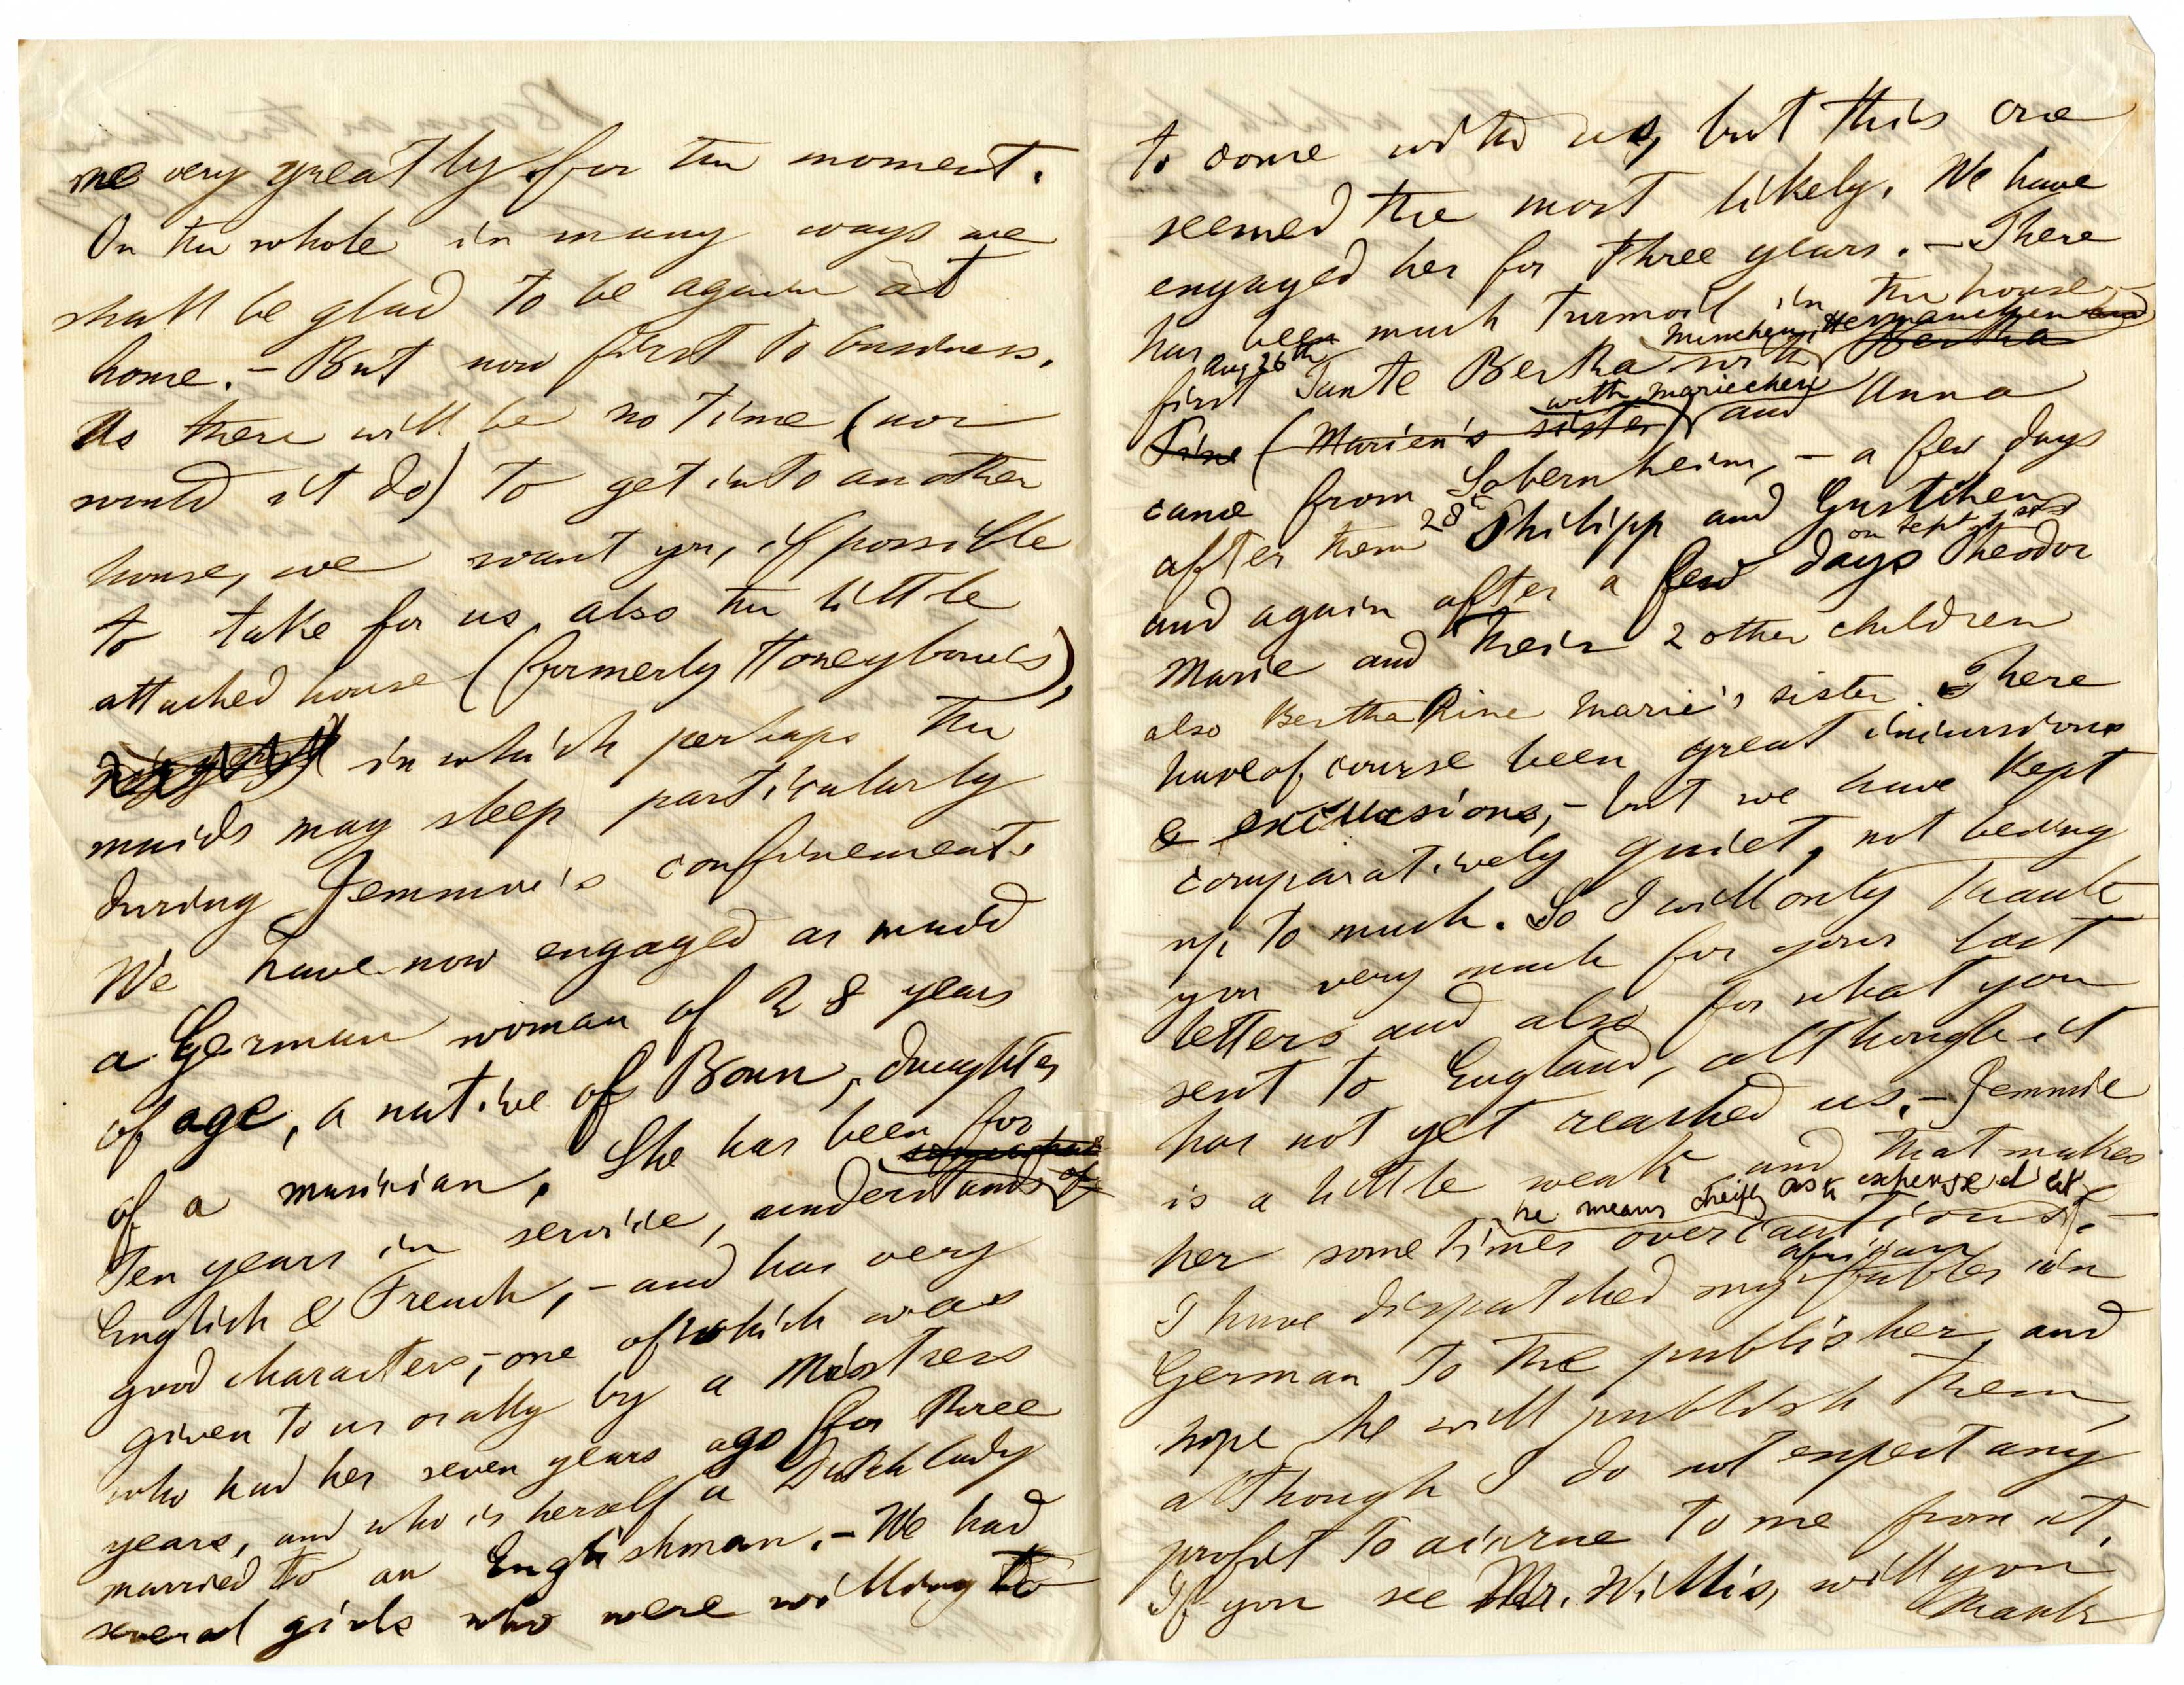 me very greatly for the moment.
On the whole in many ways we
shall be glad to be again at
home. – But now first to business.
As there will be no time (nor
would it do) to get into another
house, we want you, if possible
to take for us also the little
attached house (formerly Honeybones),
in which perhaps the
maids may sleep particularly
during Jemmie's confinement.
We have now engaged as maid
a German woman of 28 years
of age, a native of Bonn, daughter
of a musician. She has been for
ten years in service, understands
English & French, – and has very
good characters, – one of which was
given to us orally by a Mistress
who had her seven years ago for three
years, and who is herself a Dutch lady
married to an Englishman. – We had
several girls who were willing to
to come with us, but this one
seemed the most likely. We have
engaged her for three years. – There
has been much turmoil in the house –
Aug 26th Minchen, Hermanchen and
first Tante Bertha with Bertha
with Mariechen
Tine (Marien's sister) and Anna
came from Sobernheim, – a few days
after them 28th Philipp and Gustchen
on Sept 1st
and again after a few days Theodor
Marie and their 2 other children
also Bertha Rine Marie's sister. There
have of course been great incursions
& excursions, – but we have kept
comparatively quiet, not being
up to much. So I will only thank
you very much for your last
letters and also for what you
sent to England, although it
has not yet reached us. – Jemmie
is a little weak and that makes
he means chiefly as expense diet
her sometimes overcautious. –
african
I have dispatched my fables in
German to the publisher, and
hope he will publish them,
although I do not expect any
profit to accrue to me from it.
If you see Mr. Willis, will you
thank